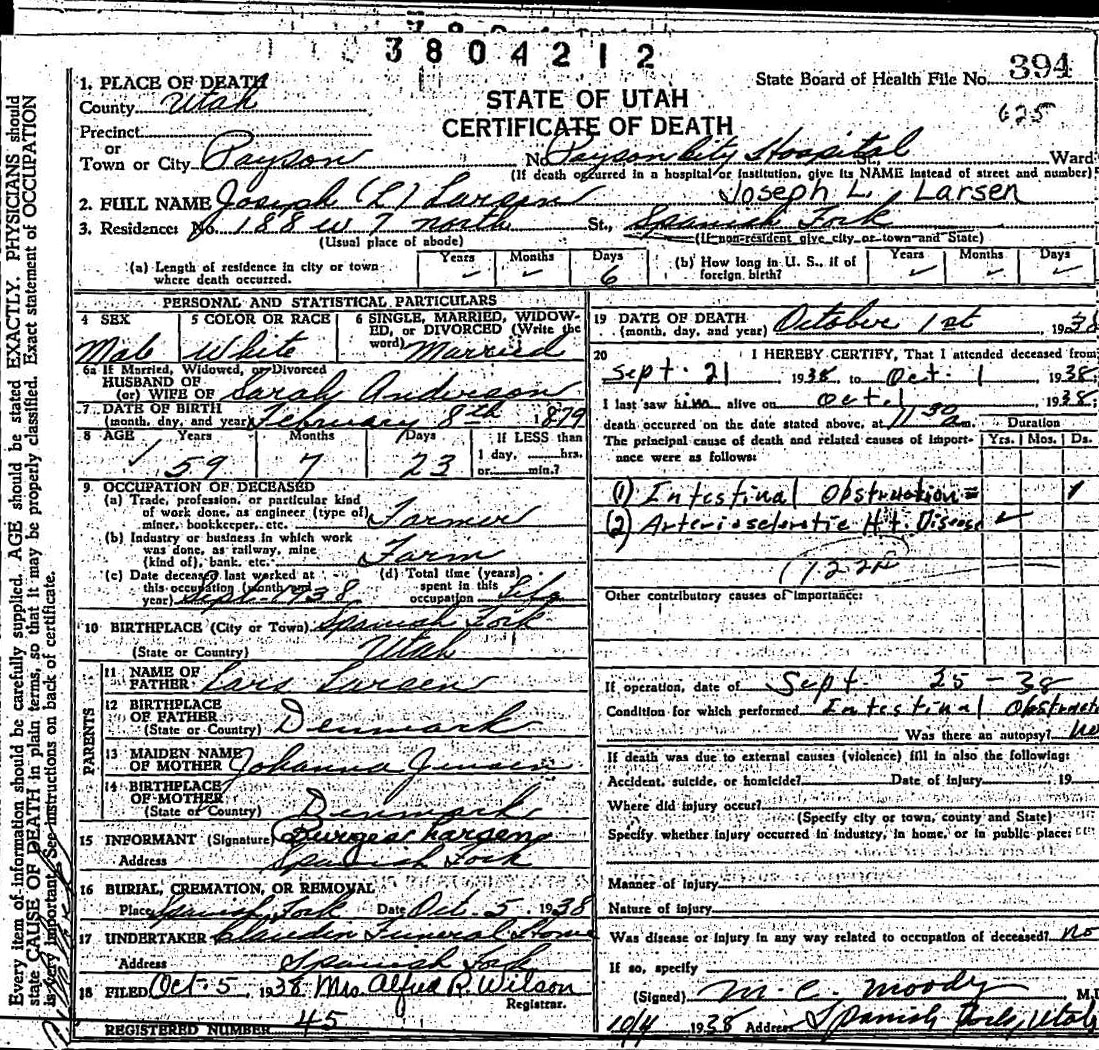 3804212
State Board of Health File No. 394
625
STATE OF UTAH
CERTIFICATE OF DEATH
1. PLACE OF DEATH
County Utah
Precinct
or
Town or City Payson No. Payson City Hospital St., Ward
(If death occurred in a hospital or institution, give its NAME instead of street and number)
2. FULL NAME Joseph (L) Larsen Joseph L. Larsen
3. Residence: No. 188 W 7 north St., Spanish Fork
(Usual place of abode) (If non-resident give city or town and State)
(a) Length of residence in city or town where death occurred. Years Months Days 6
(b) How long in U. S., if of foreign birth? Years Months Days
PERSONAL AND STATISTICAL PARTICULARS
4 SEX Male
5 COLOR OR RACE White
6 SINGLE, MARRIED, WIDOWED, OR DIVORCED (Write the word) Married
6a If Married, Widowed, or Divorced
HUSBAND OF
(or) WIFE OF Sarah Anderson
7 DATE OF BIRTH
(month, day, and year) February 8th 1879
8 AGE Years 59 Months 7 Days 23 If LESS than 1 day, hrs. or min.?
9 OCCUPATION OF DECEASED
(a) Trade, profession, or particular kind
of work done, as engineer (type of)
miner, bookkeeper, etc. Farmer
(b) Industry or business in which work
was done, as railway, mine
(kind of), bank, etc. Farm
(c) Date deceased last worked at this occupation (month and year) Sept. 1938
(d) Total time (years) spent in this occupation Life
10 BIRTHPLACE (City or Town) Spanish Fork
(State or Country) Utah
PARENTS
11 NAME OF FATHER Lars Larsen
12 BIRTHPLACE OF FATHER
(State or Country) Denmark
13 MAIDEN NAME OF MOTHER Johanna Jensen
14 BIRTHPLACE OF MOTHER
(State or Country) Denmark
15 INFORMANT (Signature) Burges Larsen
Address Spanish Fork
16 BURIAL, CREMATION, OR REMOVAL
Place Spanish Fork Date Oct. 5, 1938
17 UNDERTAKER Claudin Funeral Home
Address Spanish Fork
18 FILED Oct. 5, 1938 Mrs. Alfred R. Wilson
Registrar.
REGISTERED NUMBER 45
19 DATE OF DEATH
(month, day, and year) October 1st 1938
20 I HEREBY CERTIFY, That I attended deceased from
Sept. 21 1938, to Oct. 1 1938;
I last saw him alive on Oct. 1 1938;
death occurred on the date stated above, at 11-30 a m.
Duration
The principal cause of death and related causes of importance were as follows: Yrs. Mos. Ds.
(1) Intestinal Obstruction =
(2) Arteriosclerotic Ht. Disease
Other contributory causes of importance:
If operation, date of Sept. 25-38
Condition for which performed Intestinal Obstruct
Was there an autopsy? no
If death was due to external causes (violence) fill in also the following:
Accident, suicide, or homicide? Date of injury 19
Where did injury occur?
(Specify city or town, county and State)
Specify whether injury occurred in industry, in home, or in public place:
Manner of injury
Nature of injury
Was disease or injury in any way related to occupation of deceased? no
If so, specify
(Signed) M. C. Moody M.D
10/4 1938 Address Spanish Fork, Utah
Every item of information should be carefully supplied. AGE should be stated EXACTLY. PHYSICIANS should
state CAUSE OF DEATH in plain terms, so that it may be properly classified. Exact statement of OCCUPATION
is very important. See instructions on back of certificate.